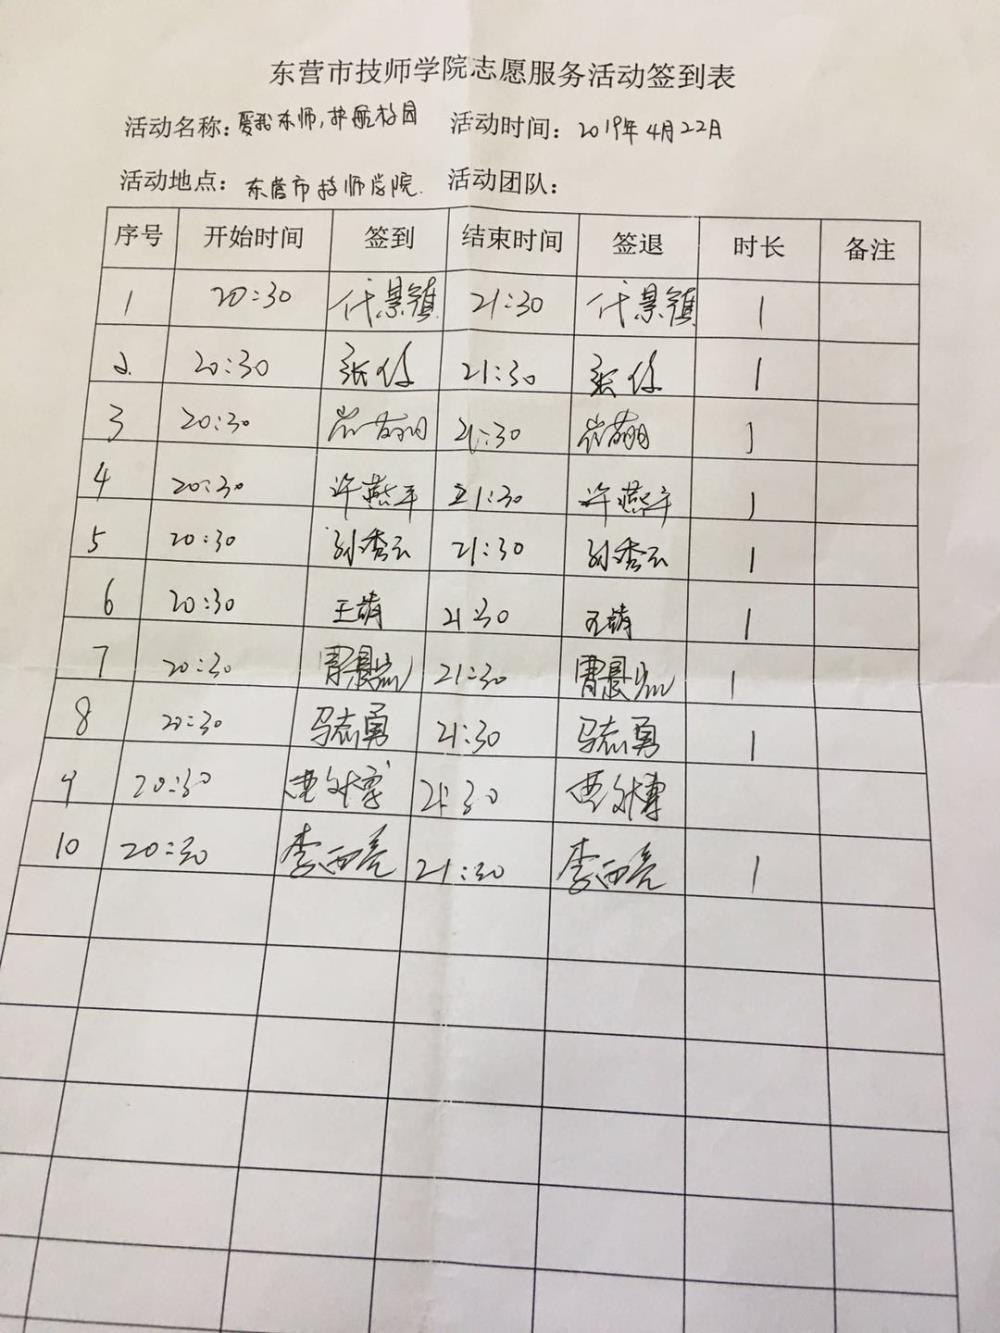 东营市技师学院志愿服务活动签到表
活动名称：爱我东师，护航校园 活动时间：2019年4月22日
活动地点：东营市技师学院. 活动团队：
序号 开始时间 签到 结束时间 签退 时长 备注
1 20:30 代景镇 21:30 代景镇 1
2. 20:30 张 21:30 张 1
3 20:30 崔萌 21:30 崔萌 1
4 20:30 许燕平 21:30 许燕平 1
5 20:30 孙秀云 21:30 孙秀云 1
6 20:30 王萌 21:30 王萌 1
7 20:30 曹 21:30 曹 1
8 20:30 马志勇 21:30 马志勇 1
9 20:30 曲文博 21:30 曲文博
10 20:30 李西亮 21:30 李西亮 1